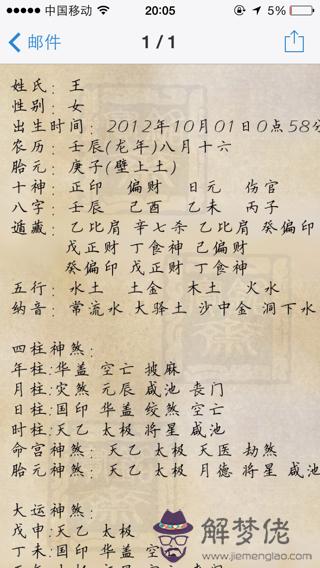 中国移动 20:05 5%
邮件 1 / 1
姓氏：王
性别：女
出生时间：2012年10月01日0点58分
农历：壬辰(龙年)八月十六
胎元：庚子(壁上土)
十神：正印 偏财 日元 伤官
八字：壬辰 己酉 乙未 丙子
遁藏：乙比肩 辛七杀 乙比肩 癸偏印
戊正财 丁食神 己偏财
癸偏印 戊正财 丁食神
五行：水土 土金 木土 火水
纳音：常流水 大驿土 沙中金 洞下水
四柱神煞：
年柱:华盖 空亡 披麻
月柱:灾煞 元辰 咸池 丧门
日柱:国印 华盖 绞煞 空亡
时柱:天乙 太极 将星 咸池
命宫神煞：天乙 太极 天医 劫煞
胎元神煞：天乙 太极 月德 将星 咸池
大运神煞：
戊申:天乙 太极
丁未:国印 华盖 空亡
解梦佬
www.jiemenglao.com